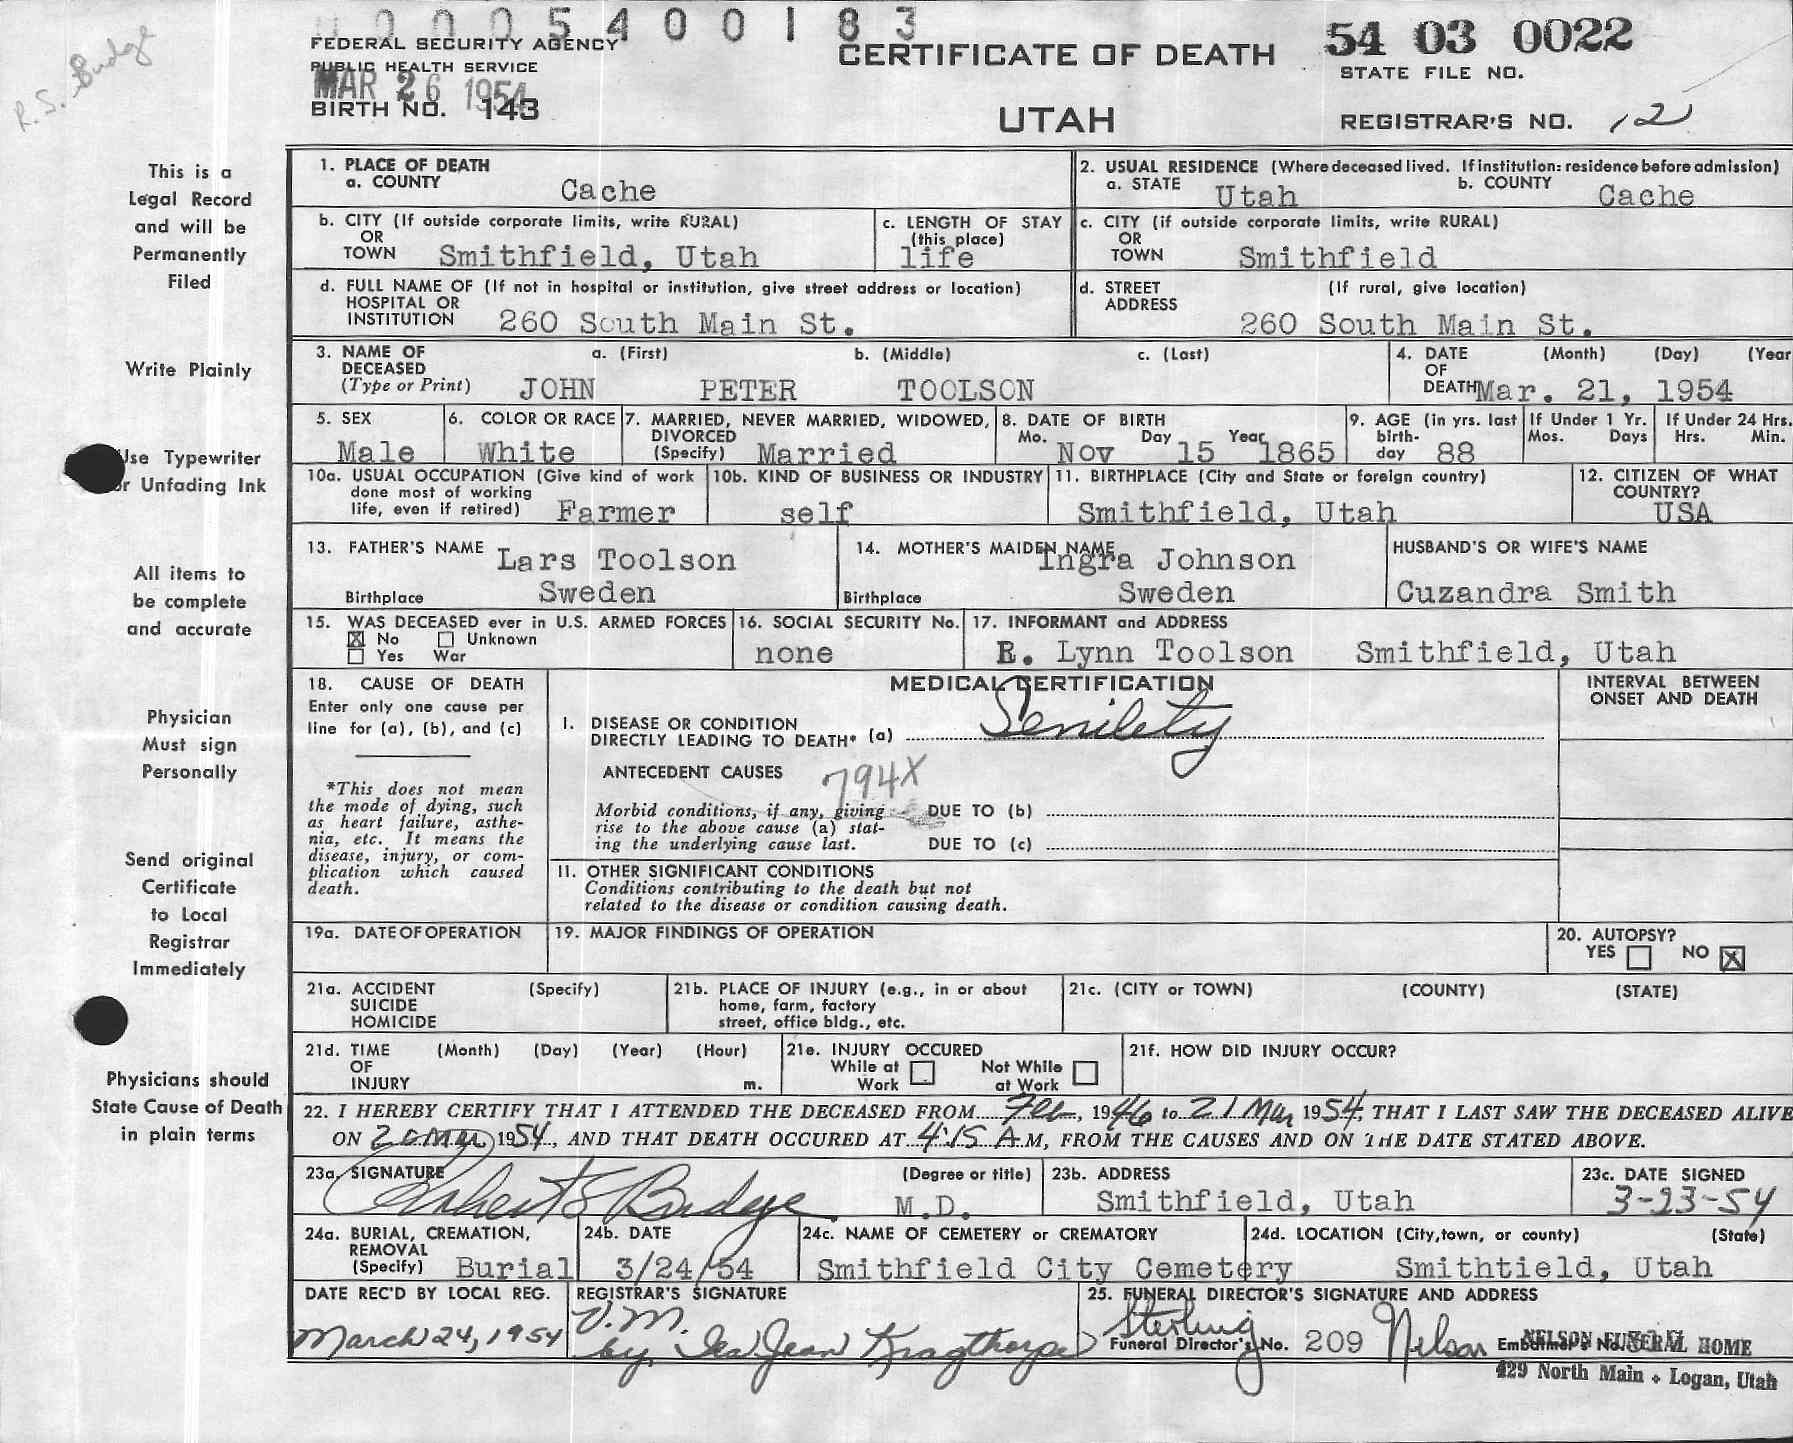 0005400183
R.S. Budge
FEDERAL SECURITY AGENCY
PUBLIC HEALTH SERVICE
MAR 26 1954
BIRTH NO. 143
CERTIFICATE OF DEATH
UTAH
54 03 0022
STATE FILE NO.
REGISTRAR'S NO. 12
This is a
Legal Record
and will be
Permanently
Filed
Write Plainly
Use Typewriter
or Unfading Ink
All items to
be complete
and accurate
Physician
Must sign
Personally
Send original
Certificate
to Local
Registrar
Immediately
Physicians should
State Cause of Death
in plain terms
1. PLACE OF DEATH
a. COUNTY Cache
2. USUAL RESIDENCE (Where deceased lived. If institution: residence before admission)
a. STATE Utah b. COUNTY Cache
b. CITY (If outside corporate limits, write RURAL)
OR
TOWN Smithfield, Utah
c. LENGTH OF STAY
(this place)
life
c. CITY (if outside corporate limits, write RURAL)
OR
TOWN Smithfield
d. FULL NAME OF (If not in hospital or institution, give street address or location)
HOSPITAL OR
INSTITUTION 260 South Main St.
d. STREET (If rural, give location)
ADDRESS
260 South Main St.
3. NAME OF a. (First) b. (Middle) c. (Last)
DECEASED
(Type or Print) JOHN PETER TOOLSON
4. DATE (Month) (Day) (Year
OF
DEATH Mar. 21, 1954
5. SEX
Male
6. COLOR OR RACE
White
7. MARRIED, NEVER MARRIED, WIDOWED,
DIVORCED
(Specify) Married
8. DATE OF BIRTH
Mo. Day Year
Nov 15 1865
9. AGE (in yrs. last
birth-
day 88
If Under 1 Yr.
Mos. Days
If Under 24 Hrs.
Hrs. Min.
10a. USUAL OCCUPATION (Give kind of work
done most of working
life, even if retired) Farmer
10b. KIND OF BUSINESS OR INDUSTRY
self
11. BIRTHPLACE (City and State or foreign country)
Smithfield, Utah
12. CITIZEN OF WHAT
COUNTRY?
USA
13. FATHER'S NAME Lars Toolson
Birthplace Sweden
14. MOTHER'S MAIDEN NAME Ingra Johnson
Birthplace Sweden
HUSBAND'S OR WIFE'S NAME
Cuzandra Smith
15. WAS DECEASED ever in U.S. ARMED FORCES
☒ No ☐ Unknown
☐ Yes War
16. SOCIAL SECURITY No.
none
17. INFORMANT and ADDRESS
R. Lynn Toolson Smithfield, Utah
18. CAUSE OF DEATH
Enter only one cause per
line for (a), (b), and (c)
*This does not mean
the mode of dying, such
as heart failure, asthe-
nia, etc. It means the
disease, injury, or com-
plication which caused
death.
MEDICAL CERTIFICATION
I. DISEASE OR CONDITION
DIRECTLY LEADING TO DEATH* (a) Senilety
ANTECEDENT CAUSES 794X
Morbid conditions, if any, giving DUE TO (b)
rise to the above cause (a) stat-
ing the underlying cause last. DUE TO (c)
II. OTHER SIGNIFICANT CONDITIONS
Conditions contributing to the death but not
related to the disease or condition causing death.
INTERVAL BETWEEN
ONSET AND DEATH
19a. DATE OF OPERATION
19. MAJOR FINDINGS OF OPERATION
20. AUTOPSY?
YES ☐ NO ☒
21a. ACCIDENT (Specify)
SUICIDE
HOMICIDE
21b. PLACE OF INJURY (e.g., in or about
home, farm, factory
street, office bldg., etc.
21c. (CITY or TOWN) (COUNTY) (STATE)
21d. TIME (Month) (Day) (Year) (Hour)
OF
INJURY m.
21e. INJURY OCCURED
While at Not While
Work ☐ at Work ☐
21f. HOW DID INJURY OCCUR?
22. I HEREBY CERTIFY THAT I ATTENDED THE DECEASED FROM Feb, 1946 to 21 Mar 1954, THAT I LAST SAW THE DECEASED ALIVE
ON 20 Mar 1954, AND THAT DEATH OCCURED AT 4:15 A.M, FROM THE CAUSES AND ON THE DATE STATED ABOVE.
23a. SIGNATURE (Degree or title)
Robert S Budge M.D.
23b. ADDRESS
Smithfield, Utah
23c. DATE SIGNED
3-23-54
24a. BURIAL, CREMATION,
REMOVAL
(Specify) Burial
24b. DATE
3/24/54
24c. NAME OF CEMETERY or CREMATORY
Smithfield City Cemetery
24d. LOCATION (City, town, or county) (State)
Smithtield, Utah
DATE REC'D BY LOCAL REG.
March 24, 1954
REGISTRAR'S SIGNATURE
V.M.
by Jean Kragthorpe
25. FUNERAL DIRECTOR'S SIGNATURE AND ADDRESS
Sterling Nelson
Funeral Director's No. 209 Embalmer's No.
NELSON FUNERAL HOME
429 North Main • Logan, Utah